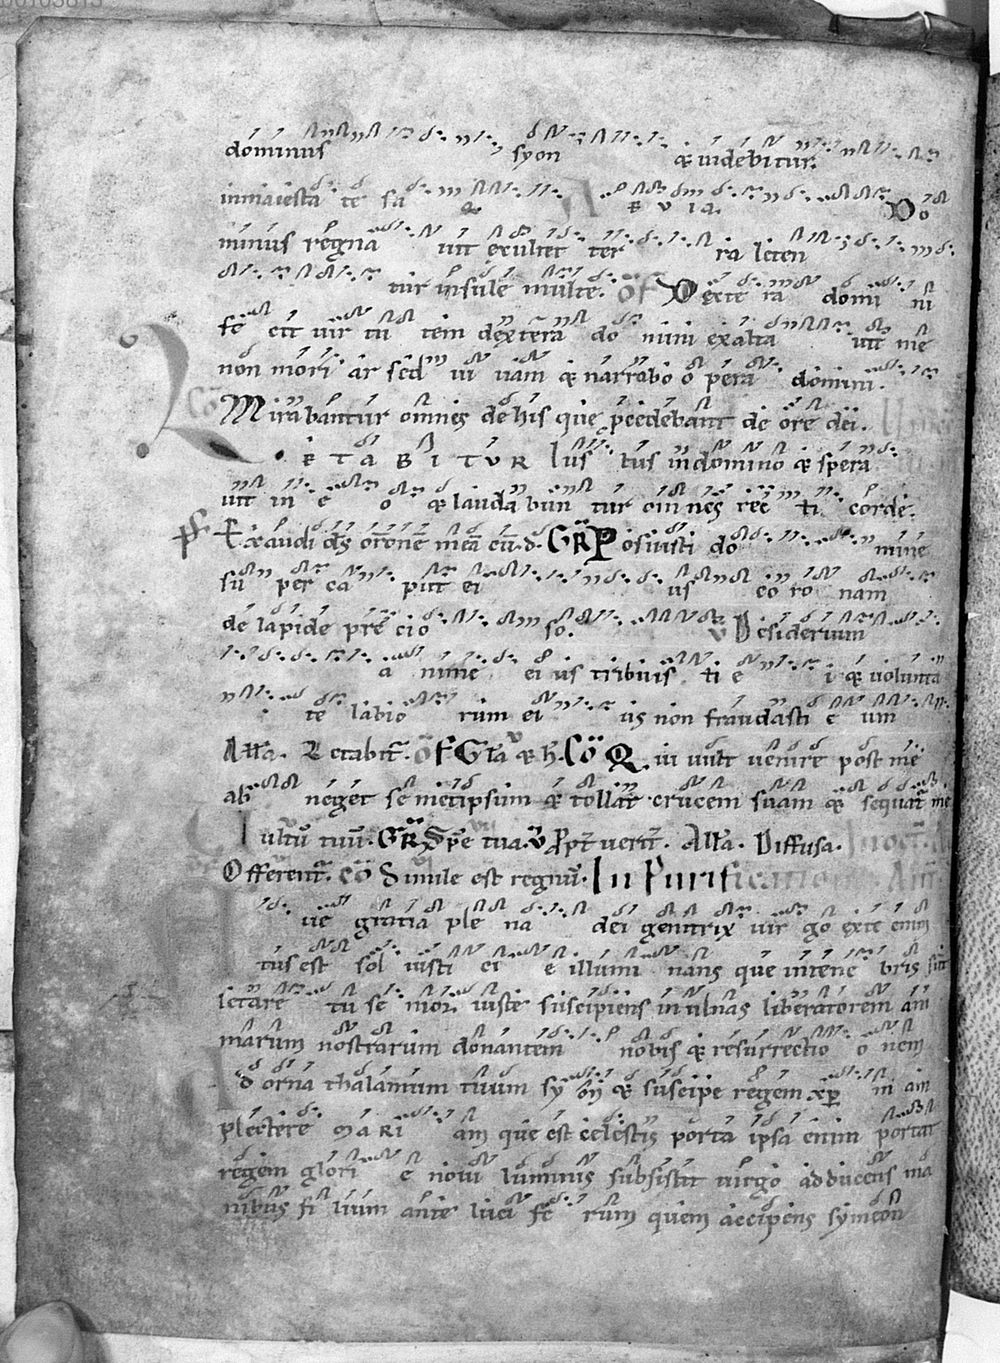 dominus syon & uidebitur
inmaiesta te sa A E V I A Do
minus regna uit exultet ter ra leten
tur insule multe. OF Dexte ra domi ni
fe cit uir tu tem dextera do mini exalta uit me
non mori ar sed ui uam & narrabo o pera domini.
CO Mirabantur omnes de his que pcedebant de ore dei.
L ETABITVR ius tus in domino & spera
uit in e o & laudabun tur omnes rec ti corde.
Exaudi ds oronem mea cu. d. GR Posuisti do mine
su per ca pitt ei us co ro nam
de lapide pre cio so. V Desiderium
a nime ei us tribuis ti e i & uolunta
te labio rum ei us non fraudasti e um
Alla. Letabit. OF Gla & h. CO Qui uult uenire post me
ab neget se metipsum & tollat crucem suam & sequat me
Uultu tuu. GR Spe tua. V Ppt uerit. Alla. Diffusa.
Offerent. CO Simile est regnu. In Purificatione
ue gratia ple na dei genitrix uir go exte enim
tus est sol iusti ci e illumi nans que intene bris sut
letare tu se nior iuste suscipiens in ulnas liberatorem ani
marum nostrarum donantem nobis & resurrectio o nem
dorna thalamum tuum sy on & suscipe regem xp m am
plectere MARI am que est celestis porta ipsa enim portat
regem glori e noui luminis subsistit uirgo adducens ma
nibus fi lium ante luci fe rum quem accipiens symeon